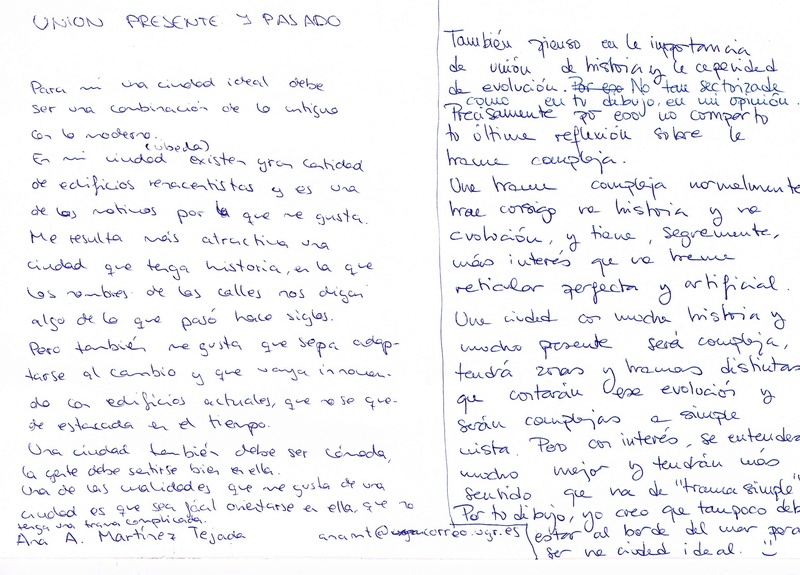 UNION PRESENTE Y PASADO
Para mi una ciudad ideal debe
ser una combinación de lo antiguo
con lo moderno.
(Úbeda)
En mi ciudad existen gran cantidad
de edificios renacentistas y es una
de los motivos por la que me gusta.
Me resulta más atractiva una
ciudad que tenga historia, en la que
los nombres de las calles nos digan
algo de lo que pasó hace siglos.
Pero también me gusta que sepa adap-
tarse al cambio y que vaya innovan-
do con edificios actuales, que no se que-
de estancada en el tiempo.
Una ciudad también debe ser cómoda,
la gente debe sentirse bien en ella.
Una de las cualidades que me gusta de una
ciudad es que sea fácil orientarse en ella, que no
tenga una trama complicada.
Ana A. Martínez Tejada anamt@correo.ugr.es
También pienso en la importancia
de unión de historia y la capacidad
de evolución. Por eso No tan sectorizada
como en tu dibujo, en mi opinión.
Precisamente por eso no comparto
tu última reflexión sobre la
trama compleja.
Una trama compleja normalmente
trae consigo una historia y una
evolución, y tiene, seguramente,
más interés que una trama
reticular perfecta y artificial.
Una ciudad con mucha historia y
mucho presente será compleja,
tendrá zonas y tramas distintas
que contarán esa evolución y
serán complejas a simple
vista. Pero con interés, se entenderá
mucho mejor y tendrán más
sentido que una de "trama simple"
Por tu dibujo, yo creo que tampoco debe
estar al borde del mar para
ser una ciudad ideal.